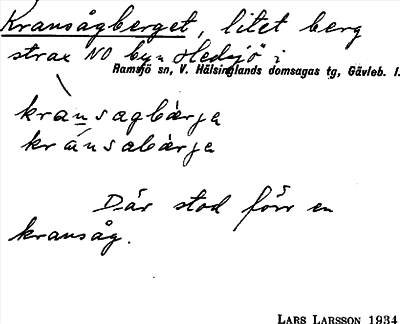 Kransågberget, litet berg
strax NO byn Hedsjö i
Ramsjö sn, V. Hälsinglands domsagas tg, Gävleb. l.
kra̱nsagbärja
kránsabärja
Där stod förr en
kransåg.
LARS LARSSON 1934